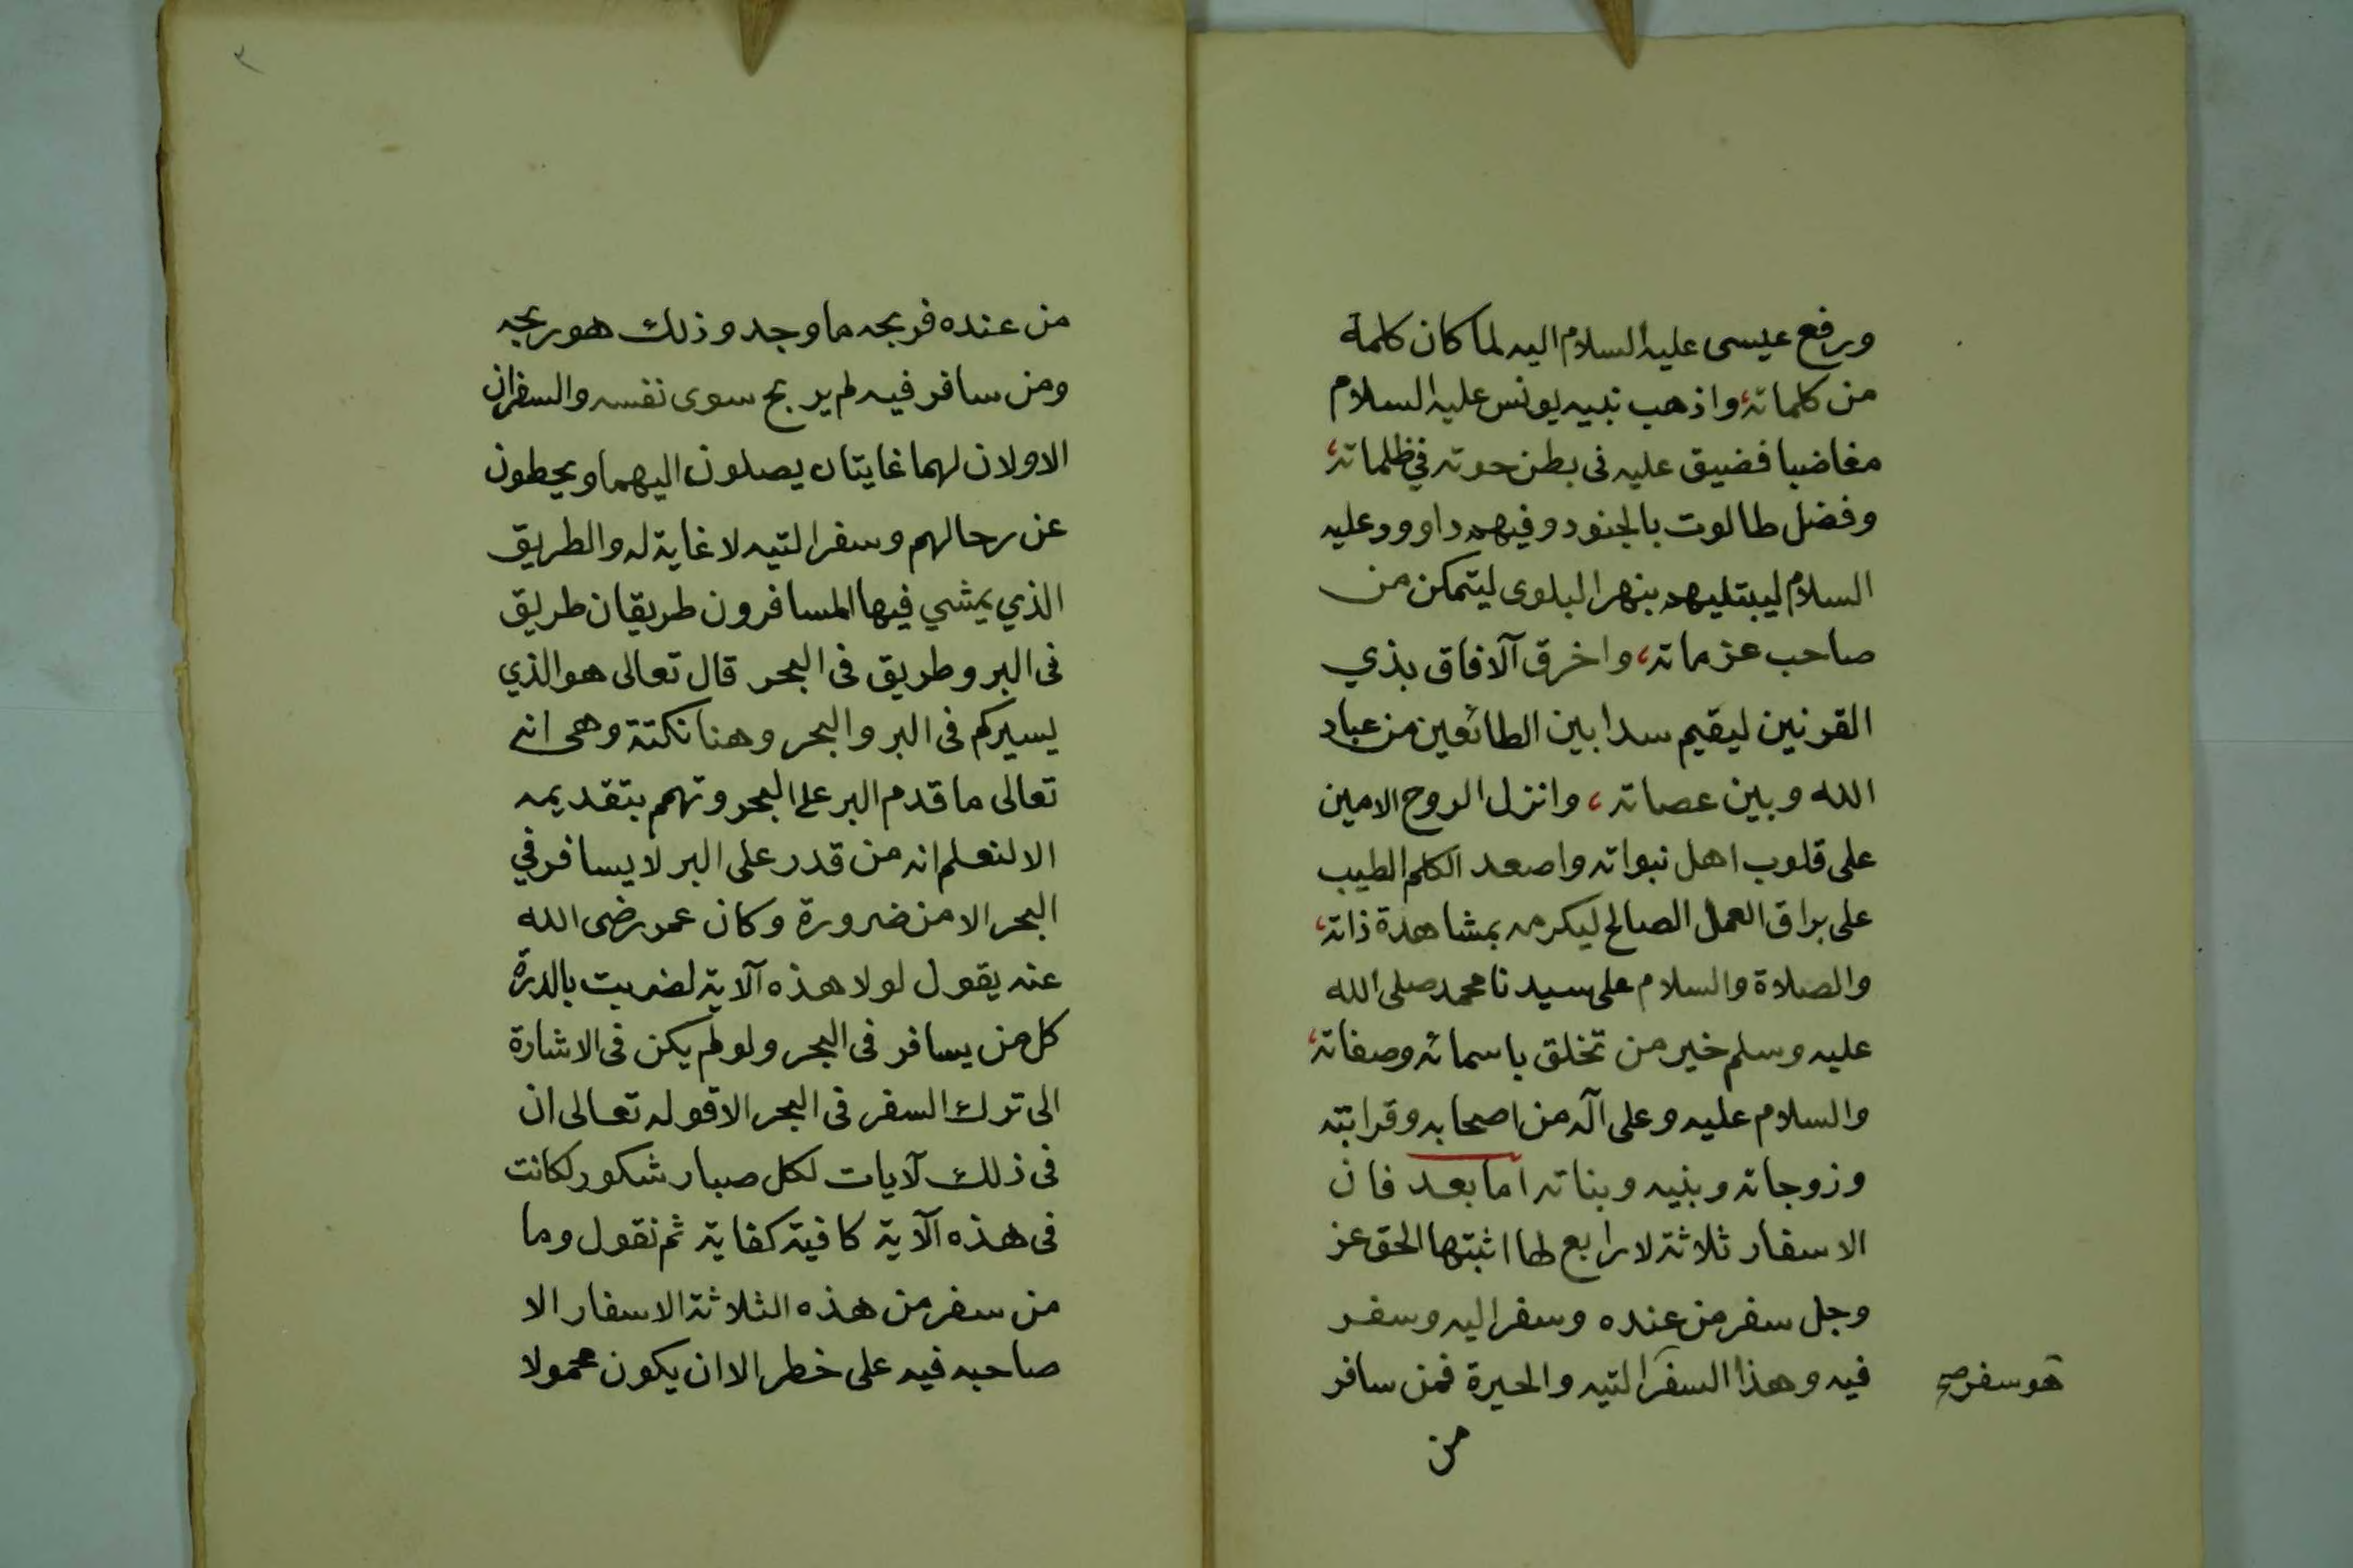 ورفع عيسى عليه السلام اليه لما كان كلمة
من كلماته، واذهب نبيه يونس عليه السلام
مغاضبا فضيق عليه فى بطن حوته في ظلماته،
وفضل طالوت بالجنود وفيهم داوود عليه
السلام ليبتليهم بنهر البلوى ليتمكن من
صاحب عزماته، واخرق آلافاق بذي
القرنين ليقيم سدا بين الطائعين من عباد
الله وبين عصاته، وانزل الروح الامين
على قلوب اهل نبواته واصعد الكلم الطيب
على براق العمل الصالح ليكرمه بمشاهدة ذاته،
والصلاة والسلام على سيدنا محمد صلى الله
عليه وسلم خير من تخلق باسمائه وصفاته،
والسلام عليه وعلى آله من اصحابه وقرابته
وزوجاته وبنيه وبناته اما بعد فان
الاسفار ثلاثة لا رابع لها اثبتها الحق عز
وجل سفر من عنده وسفر اليه وسفر
فيه وهذا السفر التيه والحيرة فمن سافر
هو سفر صح
من
٢
من عنده فربحه ما وجد وذلك هو ربحه
ومن سافر فيه لم يربح سوى نفسه والسفران
الاولان لهما غايتان يصلون اليهما ويحطون
عن رحالهم وسفر التيه لا غاية له والطريق
الذي يمشي فيها المسافرون طريقان طريق
فى البر وطريق فى البحر قال تعالى هو الذي
يسيركم فى البر والبحر وهنا نكتة وهى انه
تعالى ما قدم البر على البحر وتهمم بتقديمه
الا لنعلم انه من قدر على البر لا يسافر في
البحر الا من ضرورة وكان عمر رضى الله
عنه يقول لولا هذه آلاية لضربت بالدرة
كل من يسافر فى البحر ولو لم يكن فى الاشارة
الى ترك السفر فى البحر الا قوله تعالى ان
فى ذلك لآيات لكل صبار شكور لكانت
فى هذه آلاية كافية كفاية ثم نقول وما
من سفر من هذه الثلاثة الاسفار الا
صاحبه فيه على خطر الا ان يكون محمولا